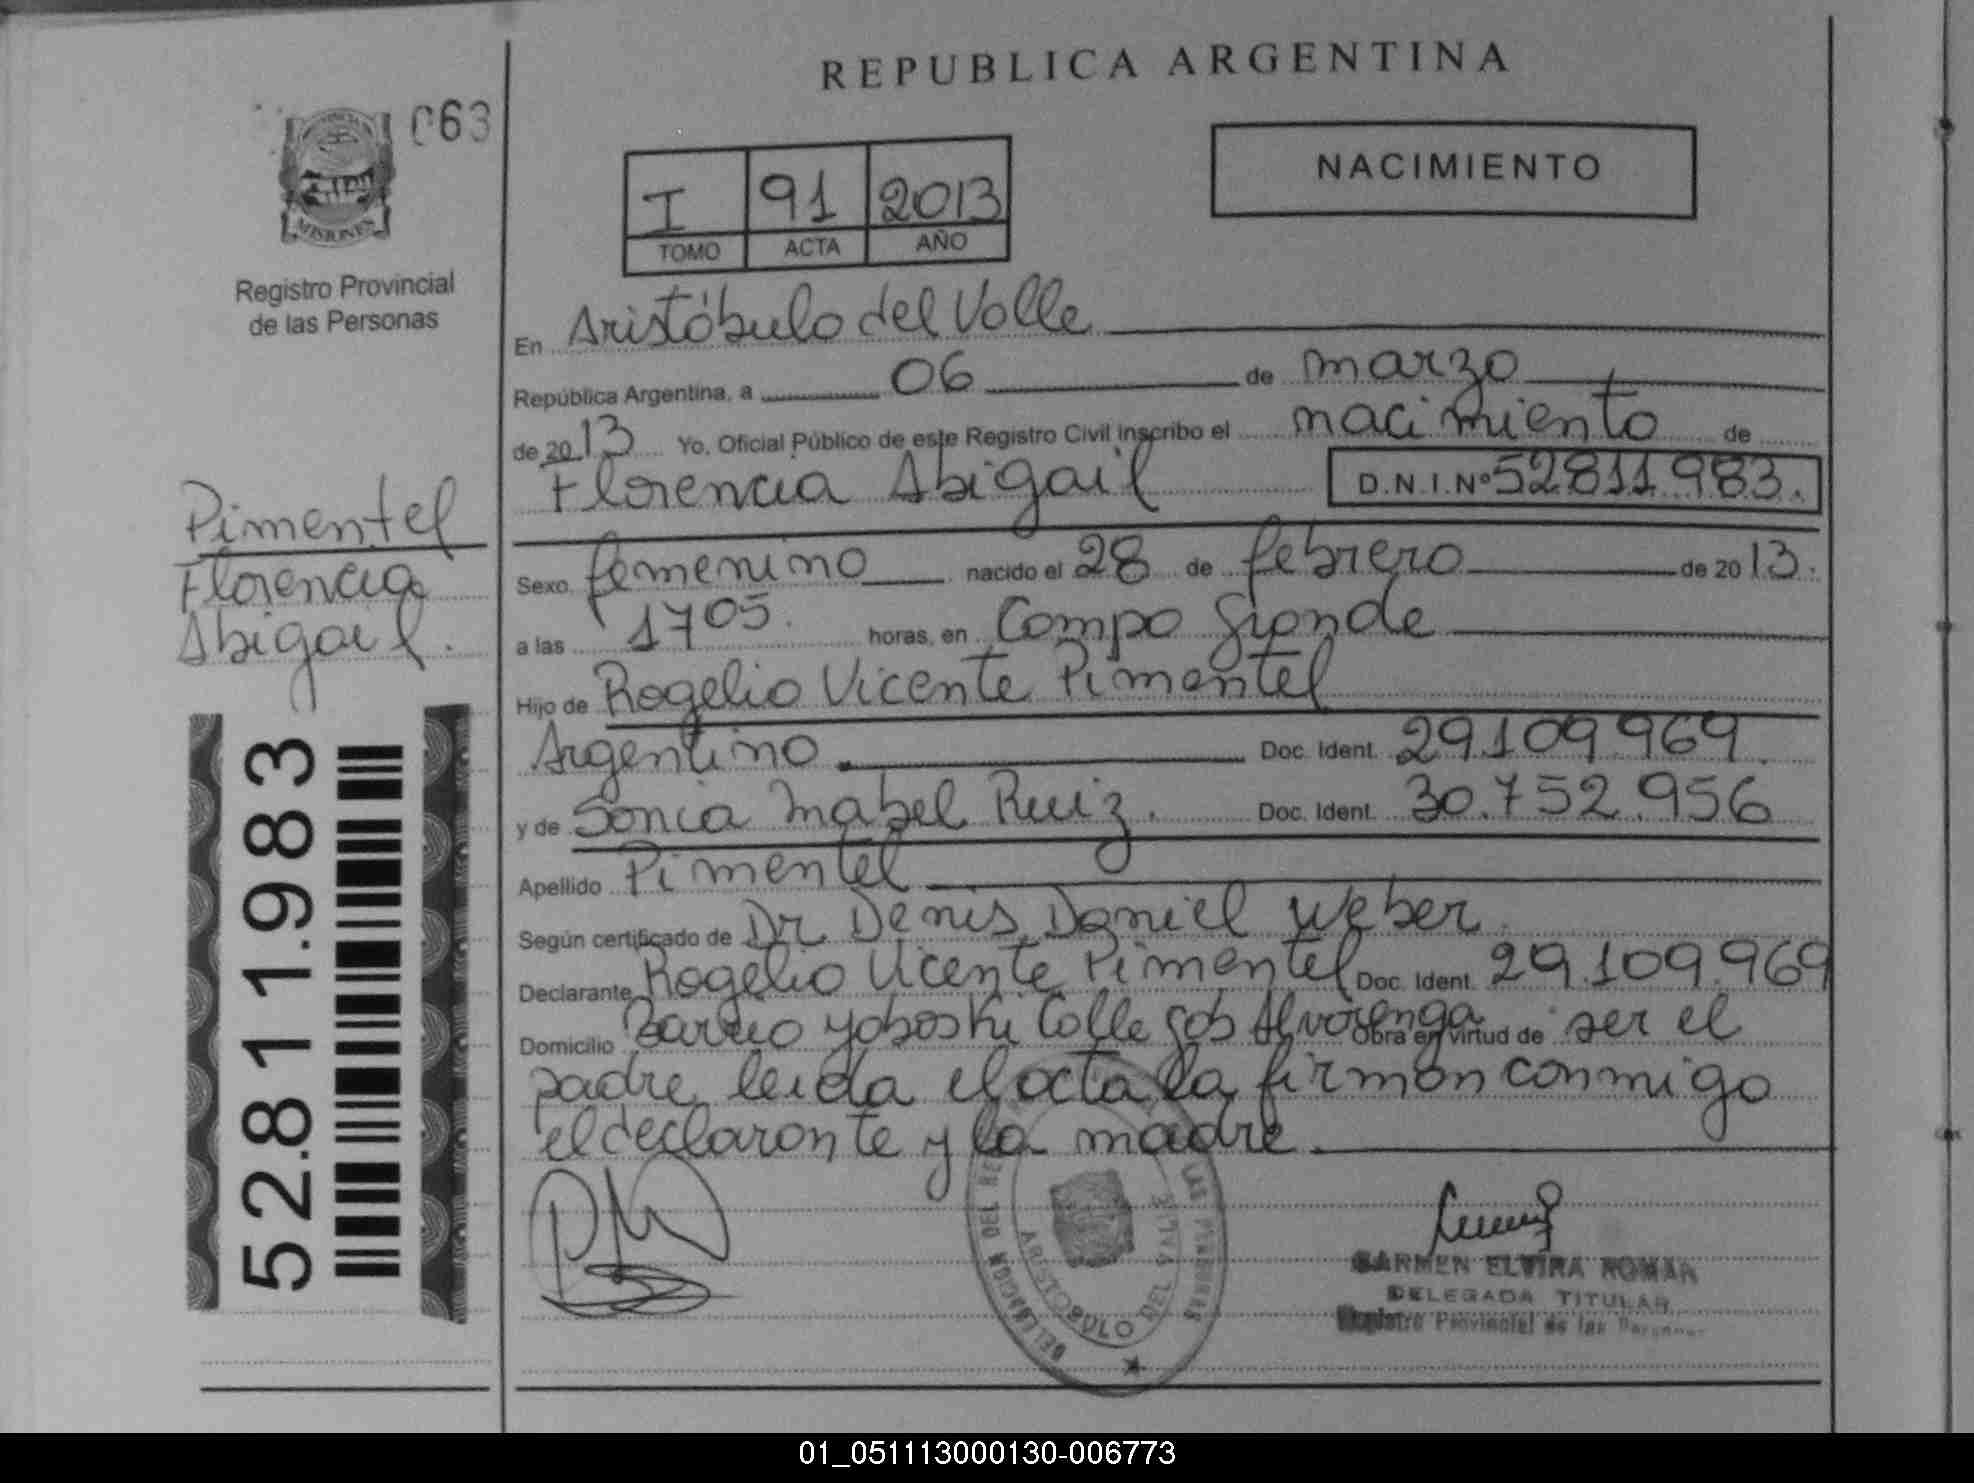 063
MISIONES
Registro Provincial
de las Personas
Pimentel
Florencia
Abigail.
52.811.983
REPUBLICA ARGENTINA
NACIMIENTO
I 91 2013
TOMO ACTA AÑO
En Aristóbulo del Valle
República Argentina, a 06 de marzo
de 2013 Yo, Oficial Público de este Registro Civil inscribo el nacimiento de
Florencia Abigail D.N.I.Nº 52811983.
Sexo femenino nacido el 28 de febrero de 2013.
a las 1705. horas, en Campo Grande
Hijo de Rogelio Vicente Pimentel
Argentino Doc. Ident. 29.109.969.
y de Sonia Mabel Ruiz. Doc. Ident. 30.752.956
Apellido Pimentel
Según certificado de Dr. Denis Daniel Weber.
Declarante Rogelio Vicente Pimentel Doc. Ident. 29.109.969
Domicilio Barrio Calle Alvorenga Obra en virtud de ser el
padre, leida el acta la firman conmigo
el declarante y la madre
DELEGACION DEL LAS PERSONAS
ARISTOBULO DEL VALLE
CARMEN ELVIRA ROMAN
DELEGADA TITULAR
Registro Provincial de las Personas
01_051113000130-006773